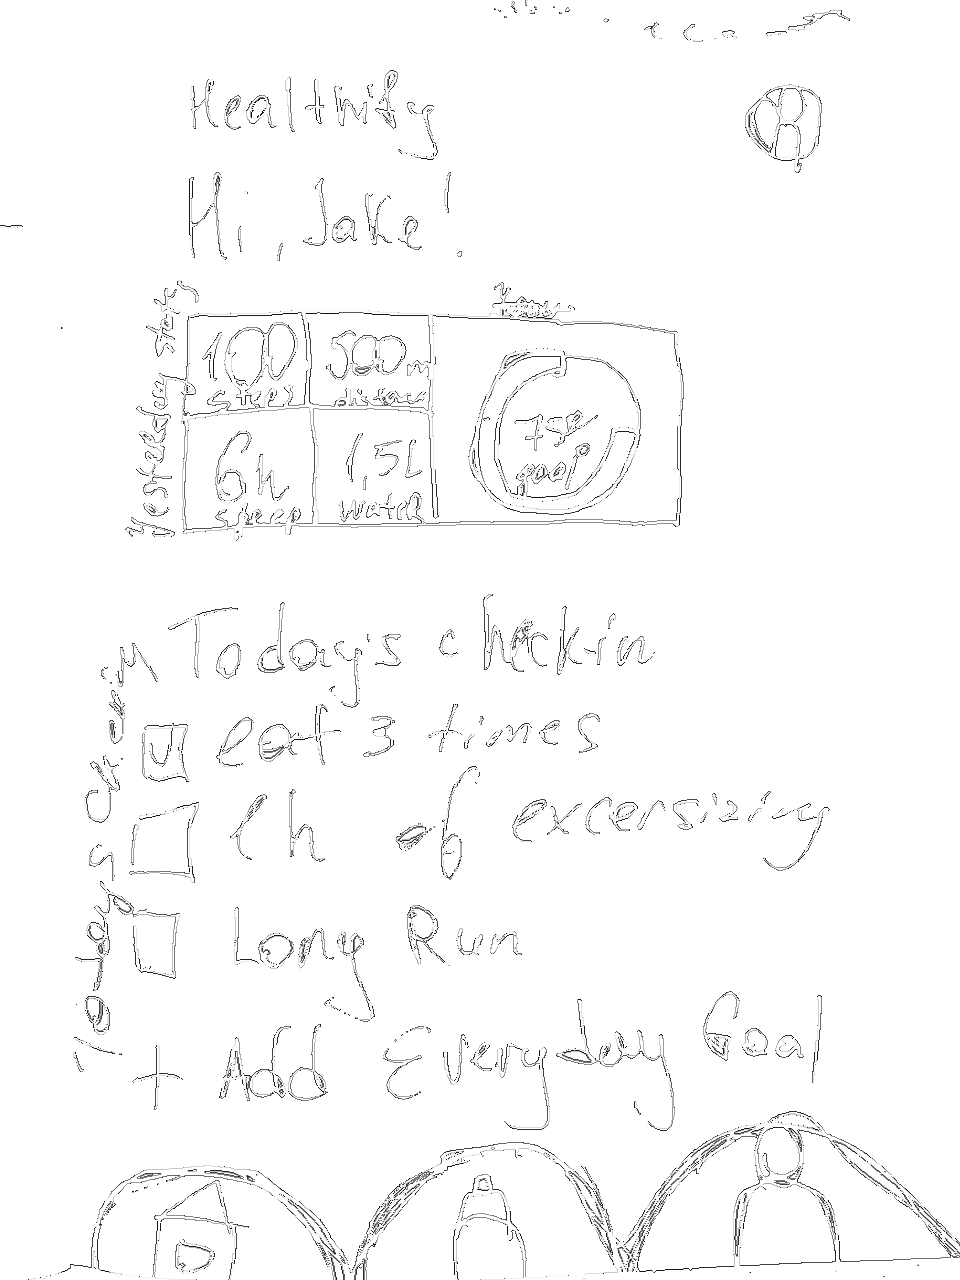 Healthify
Hi, Jake!
Yesterday stats
100 steps
500m distance
6h sleep
1,5L water
75% goal
Today's checkin
Today's Checkin
eat 3 times
1h of excersizing
Long Run
+ Add Everyday Goal